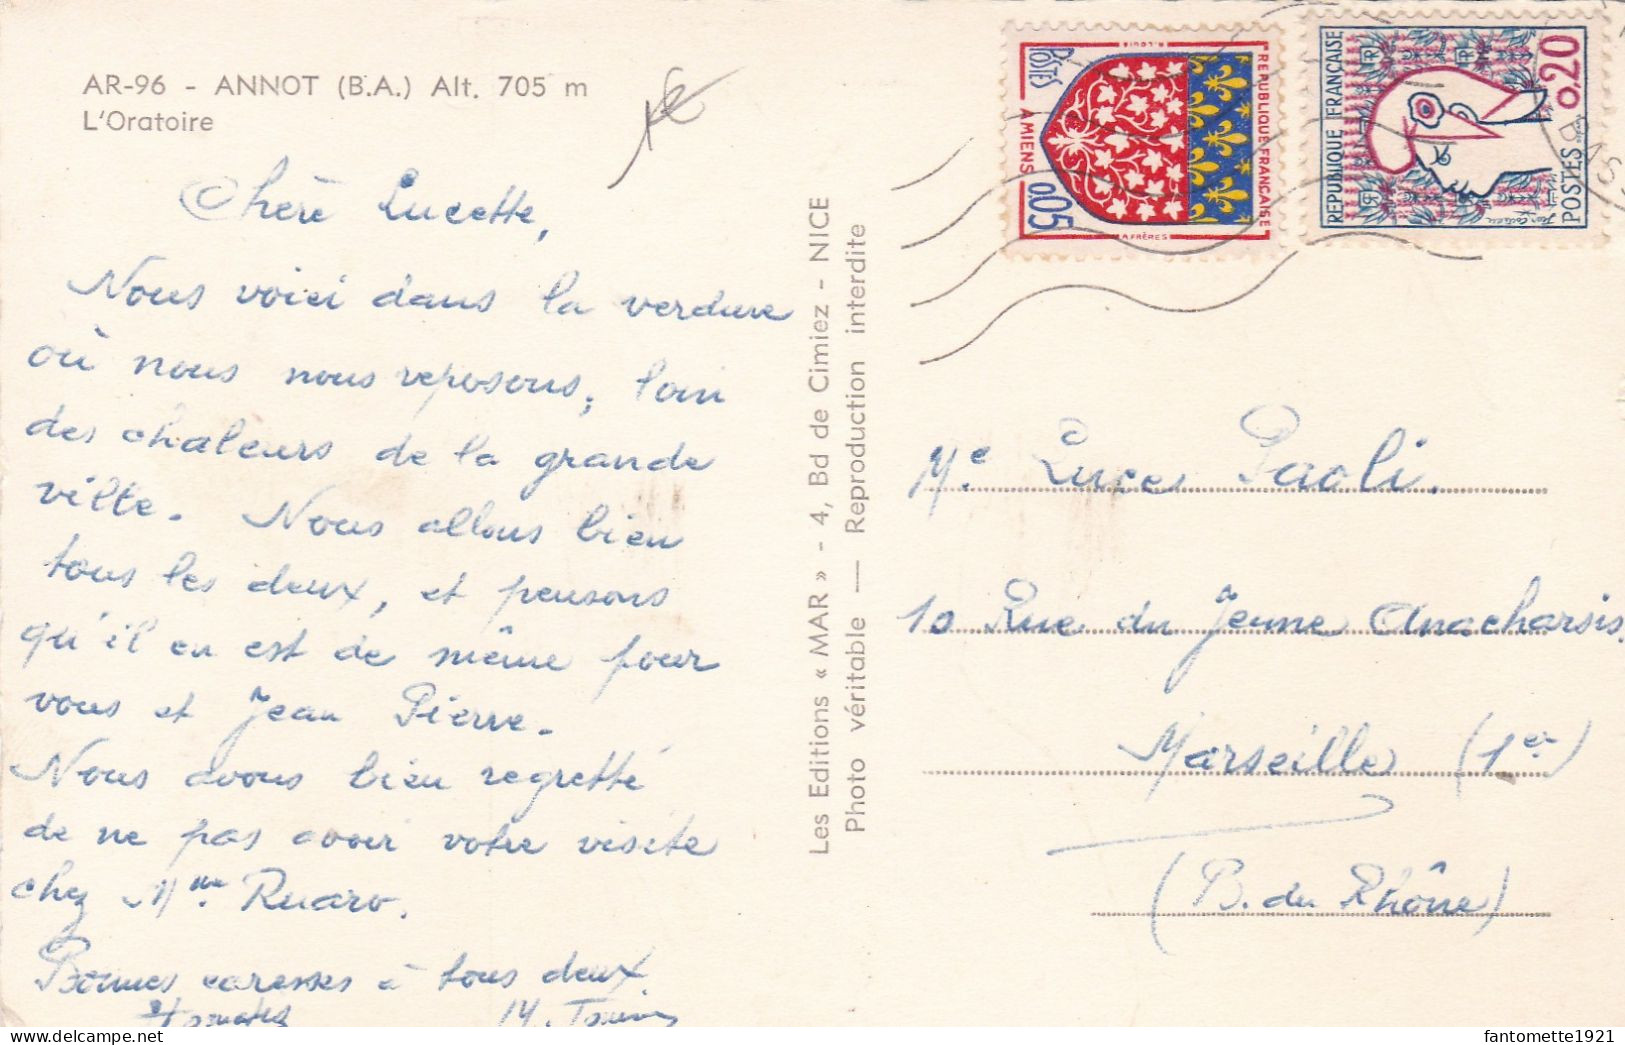 AR-96 - ANNOT (B.A.) Alt. 705 m
L'Oratoire
Chère Lucette,
Nous voici dans la verdure
où nous nous reposons, loin
des chaleurs de la grande
ville. Nous allons bien
tous les deux, et pensons
qu'il en est de même pour
vous et Jean Pierre.
Nous avons bien regretté
de ne pas avoir votre visite
chez Mme. Ruaro.
Bonnes caresses à tous deux.
Les Editions « MAR » - 4, Bd de Cimiez - NICE
Photo véritable — Reproduction interdite
POSTES
AMIENS
0,05
REPUBLIQUE FRANÇAISE
REPUBLIQUE FRANÇAISE
0,20
POSTES
RF
Me Luces Paoli.
10 Rue du Jeune Anacharsis.
Marseille (1er)
(B. du Rhône)
fantomette1921